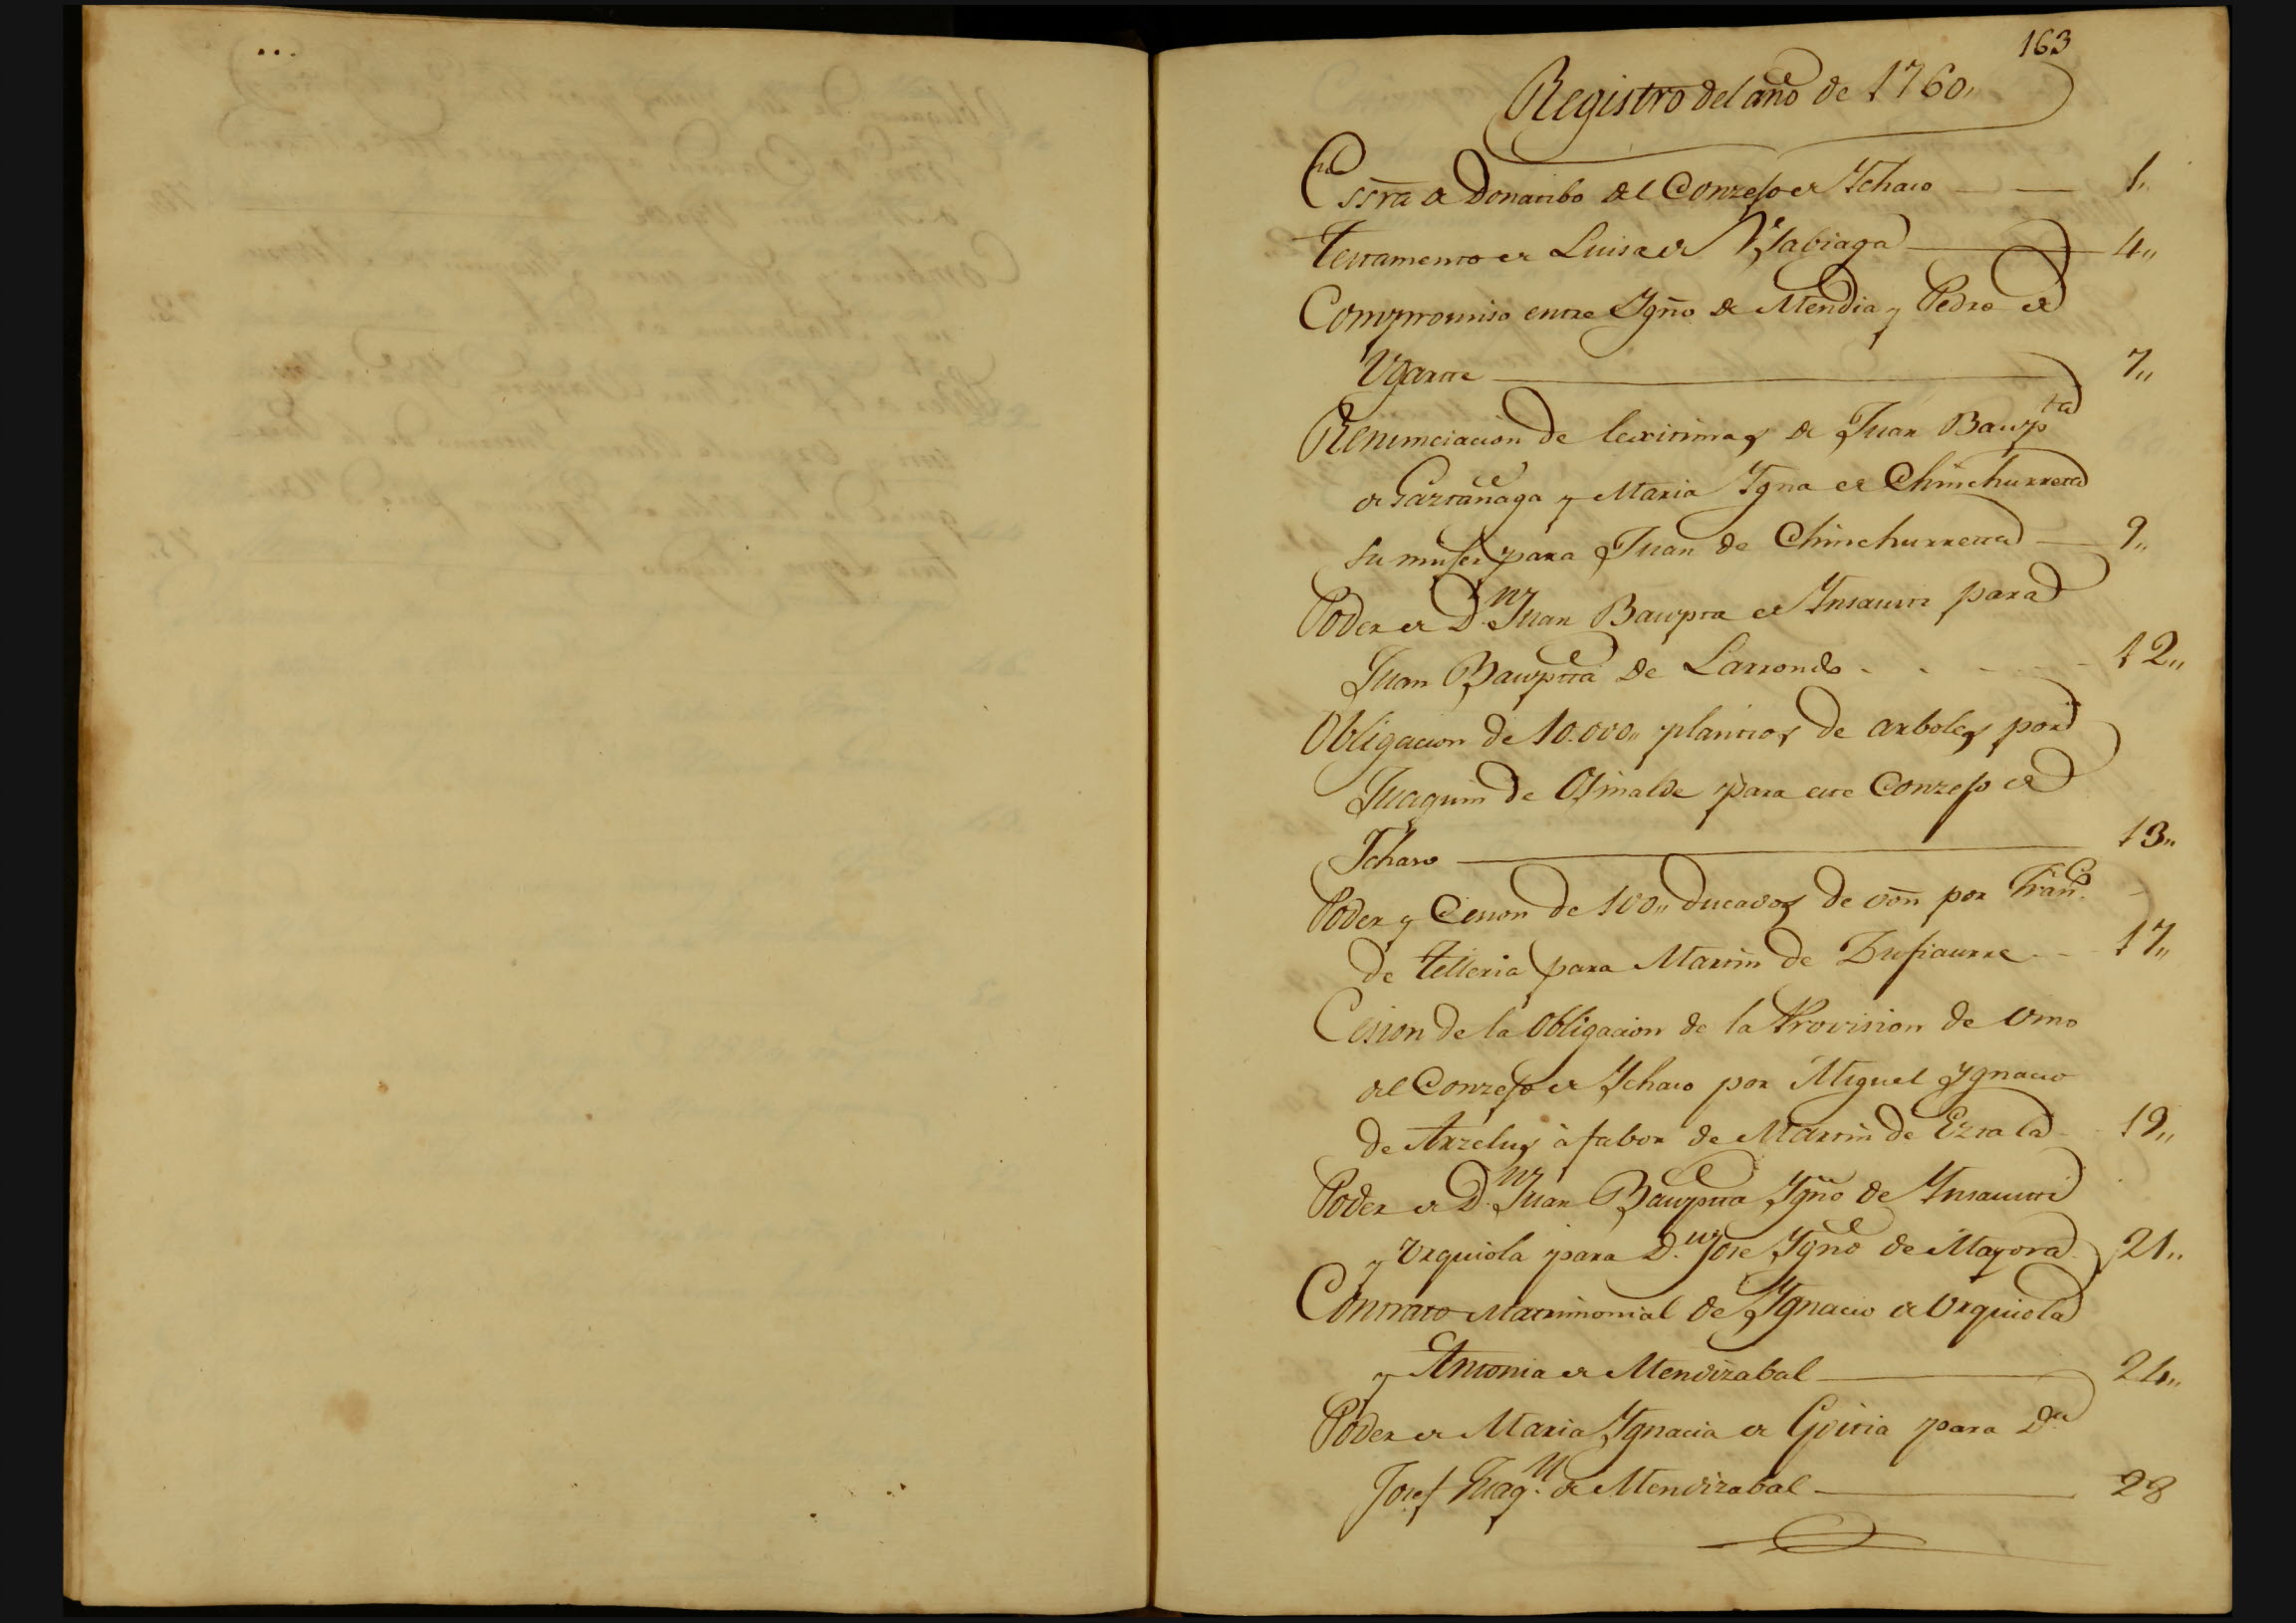 163
Registro del año de 1760,,
Essra de Donatibo del Conzejo de Ychaso 1,,
Testamento de Luisa de Ylabiaga 4,,
Compromiso entre Ygño de Mendia y Pedro de
Vgarte 7,,
Renunciacion de lexitimas de Juan Baupta
de Gaztañaga y Maria Ygna de Chinchurreta
su mujer para Juan de Chinchurreta 9,,
Poder de Dn Juan Baupta de Ynsausti para
Juan Bauptta de Larrondo 12,,
Obligacion de 10.000,, plantios de arboles por
Juaquin de Osinalde para este Conzejo de
Ychaso 13,,
Poder y Cesion de 100,, ducados de von por Franco
de Telleria para Martin de Zufiaurre 17,,
Cesion de la Obligacion de la Provision de vino
del Conzejo de Ychaso por Miguel Ygnacio
de Arzelus à fabor de Martin de Ezsala 19,,
Poder de Dn Juan Bauptta Ygño de Ynsausti
y Vrquiola para Dn Jose Ygño de Mayora 21,,
Contrato Matrimonial de Ygnacio de Vrquiola
y Antonia de Mendizabal 24,,
Poder de Maria Ygnacia de Goitia para Dn
Josef Juaqn de Mendizabal 28